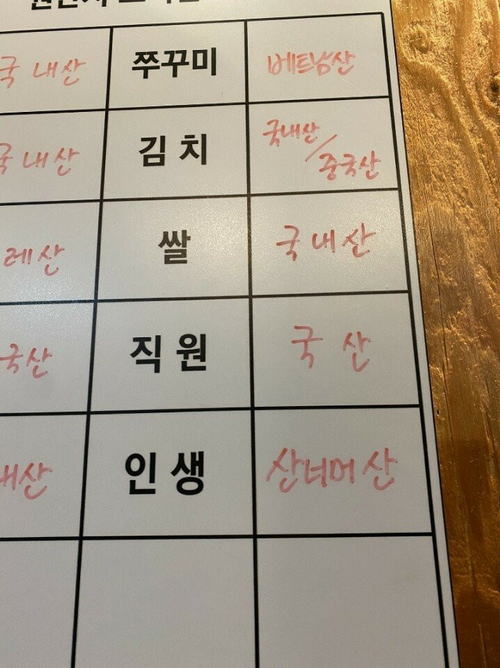 국내산 쭈꾸미 베트남산
국내산 김치 국내산/중국산
쌀 국내산
국산 직원 국 산
인생 산너머 산